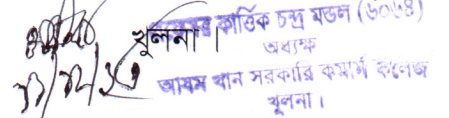 কার্তিক চন্দ্র মন্ডল (৬০৬৪)
খুলনা।
অধ্যক্ষ
আযম খান সরকারি কমার্স কলেজ
খুলনা।